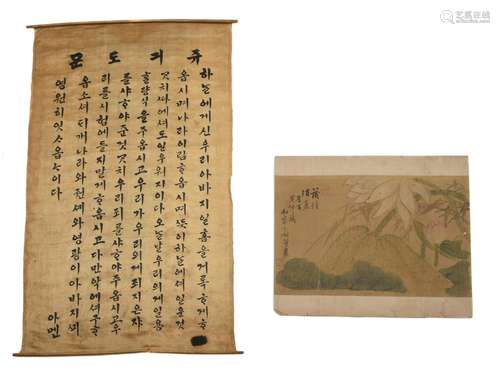 쥬긔도문
하ᄂᆞᆯ에게신우리아바지일홈을게록ᄒᆞ게ᄒᆞ
옵시며나라이림ᄒᆞ옵시며뜻이하ᄂᆞᆯ에셔일운것
ᄀᆞᆺ치ᄯᅡ에셔도일우워지이다오ᄂᆞᆯ날우리의게일용
ᄒᆞᆯ량식을주옵시고우리가우리의게죄지은쟈
를샤ᄒᆞ야준것ᄀᆞᆺ치우리죄를샤ᄒᆞ야주옵시고우
리를시험에들지말게ᄒᆞ옵시고다만악에셔구ᄒᆞ
옵소셔대개나라와권셰와영광이아바지ᄭᅴ
영원히잇ᄉᆞ옵ᄂᆞ이다
아멘
艺狐在线